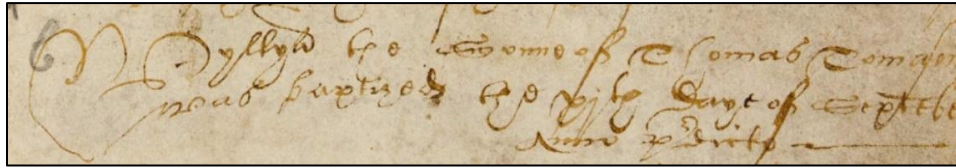 6 Wyllyā the Sonne of Thomas
was baptized the daye of Septēbe
Anno p̄dicto